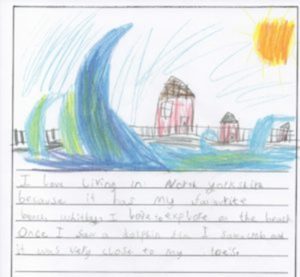 I love living in North yorkshire
because it has my favourite
beach, whitby. I love to explore on the beach
Once I saw a dolphin fin I
it was very close to my toes.